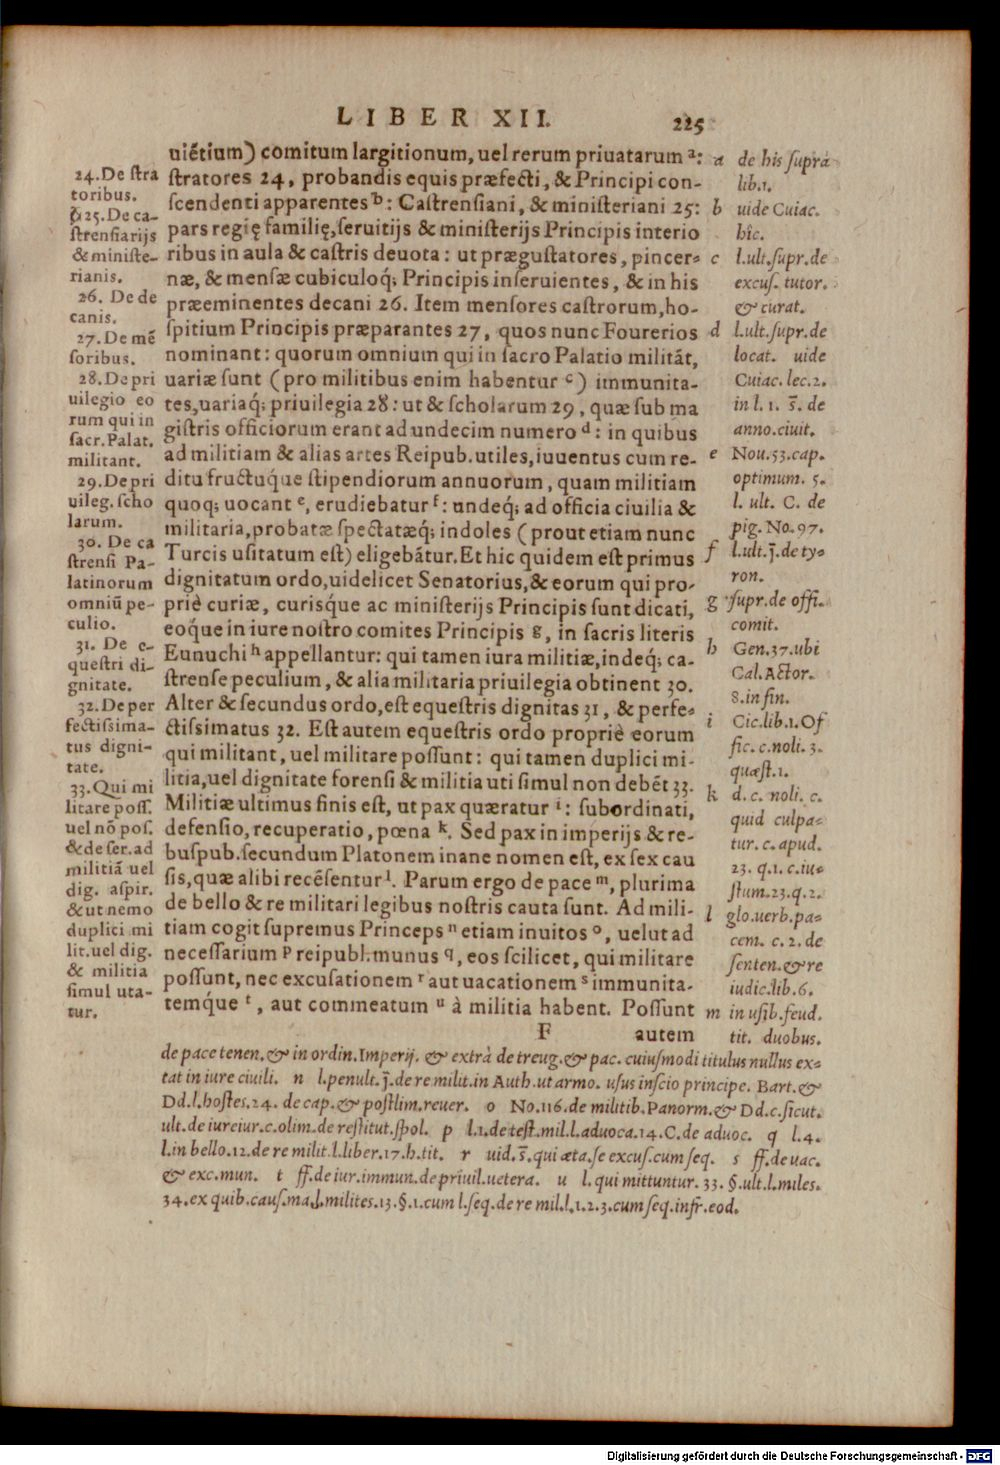 LIBER XII. 225
uiẽtium) comitum largitionum, uel rerum priuatarum ᵃ:
ſtratores 24, probandis equis præfecti, & Principi con-
ſcendenti apparentes ᵇ: Caſtrenſiani, & miniſteriani 25:
pars regię familię, ſeruitijs & miniſterijs Principis interio
ribus in aula & caſtris deuota: ut præguſtatores, pincer-
næ, & menſæ cubiculoq́; Principis inſeruientes, & in his
præeminentes decani 26. Item menſores caſtrorum, ho-
ſpitium Principis præparantes 27, quos nunc Fourerios
nominant: quorum omnium qui in ſacro Palatio militãt,
uariæ ſunt (pro militibus enim habentur ᶜ) immunita-
tes, uariaq́; priuilegia 28: ut & ſcholarum 29, quæ ſub ma
giſtris officiorum erant ad undecim numero ᵈ: in quibus
ad militiam & alias artes Reipub. utiles, iuuentus cum re-
ditu fructuq́ue ſtipendiorum annuorum, quam militiam
quoq; uocant ᵉ, erudiebatur ᶠ: undeq́; ad officia ciuilia &
militaria, probatæ ſpectatæq́; indoles (prout etiam nunc
Turcis uſitatum eſt) eligebãtur. Et hic quidem eſt primus
dignitatum ordo, uidelicet Senatorius, & eorum qui pro-
priè curiæ, curisq́ue ac miniſterijs Principis ſunt dicati,
eoq́ue in iure noſtro comites Principis ᵍ, in ſacris literis
Eunuchi ʰ appellantur: qui tamen iura militiæ, indeq́; ca-
ſtrenſe peculium, & alia militaria priuilegia obtinent 30.
Alter & ſecundus ordo, eſt equeſtris dignitas 31, & perfe-
ctiſsimatus 32. Eſt autem equeſtris ordo propriè eorum
qui militant, uel militare poſſunt: qui tamen duplici mi-
litia, uel dignitate forenſi & militia uti ſimul non debẽt 33.
Militiæ ultimus finis eſt, ut pax quæratur ⁱ: ſubordinati,
defenſio, recuperatio, pœna ᵏ. Sed pax in imperijs & re-
buſpub. ſecundum Platonem inane nomen eſt, ex ſex cau
ſis, quæ alibi recẽſentur ˡ. Parum ergo de pace ᵐ, plurima
de bello & re militari legibus noſtris cauta ſunt. Ad mili-
tiam cogit ſupremus Princeps ⁿ etiam inuitos ᵒ, uelut ad
neceſſarium ᵖ reipubl. munus q, eos ſcilicet, qui militare
poſſunt, nec excuſationem ʳ aut uacationem ˢ immunita-
temq́ue ᵗ, aut commeatum ᵘ à militia habent. Poſſunt
F autem
24. De ſtra
toribus.
25. De ca-
ſtrenſiarijs
& miniſte-
rianis.
26. De de
canis.
27. De mẽ
ſoribus.
28. De pri
uilegio eo
rum qui in
ſacr. Palat.
militant.
29. De pri
uileg. ſcho
larum.
30. De ca
ſtrenſi Pa-
latinorum
omniũ pe-
culio.
31. De e-
queſtri di-
gnitate.
32. De per
fectiſsima-
tus digni-
tate.
33. Qui mi
litare poſſ.
uel nõ poſ.
& de ſer. ad
militiã uel
dig. aſpir.
& ut nemo
duplici mi
lit. uel dig.
& militia
ſimul uta-
tur.
a de his ſuprà
lib. 1.
b uide Cuiac.
hîc.
c l. ult. ſupr. de
excuſ. tutor.
& curat.
d l. ult. ſupr. de
locat. uide
Cuiac. lec. 2.
in l. 1. s̄. de
anno. ciuit.
e Nou. 53. cap.
optimum. 5.
l. ult. C. de
pig. No. 97.
f l. ult. j̄. de ty-
ron.
g ſupr. de offi.
comit.
h Gen. 37. ubi
Cal. Actor.
8. in fin.
i Cic. lib. 1. Of
fic. c. noli. 3.
quæſt. 1.
k d. c. noli. c.
quid culpa-
tur. c. apud.
23. q. 1. c. iu-
ſtum. 23. q. 2.
l glo. uerb. pa-
cem. c. 2. de
ſenten. & re
iudic. lib. 6.
m in uſib. feud.
tit. duobus.
de pace tenen. & in ordin. Imperij. & extrà de treug. & pac. cuiuſmodi titulus nullus ex-
tat in iure ciuili. n l. penult. j̄. de re milit. in Auth. ut armo. uſus inſcio principe. Bart. &
Dd. l. hoſtes. 24. de cap. & poſtlim. reuer. o No. 116. de militib. Panorm. & Dd. c. ſicut.
ult. de iureiur. c. olim. de reſtitut. ſpol. p l. 1. de teſt. mil. l. aduoca. 14. C. de aduoc. q l. 4.
l. in bello. 12. de re milit. l. liber. 17. h. tit. r uid. s̄. qui æta. ſe excuſ. cum ſeq. s ff. de uac.
& exc. mun. t ff. de iur. immun. de priuil. uetera. u l. qui mittuntur. 33. §. ult. l. miles.
34. ex quib. cauſ. ma. l. milites. 13. §. 1. cum l. ſeq. de re mil. l. 1. 2. 3. cum ſeq. infr. eod.
Digitalisierung gefördert durch die Deutsche Forschungsgemeinschaft - DFG